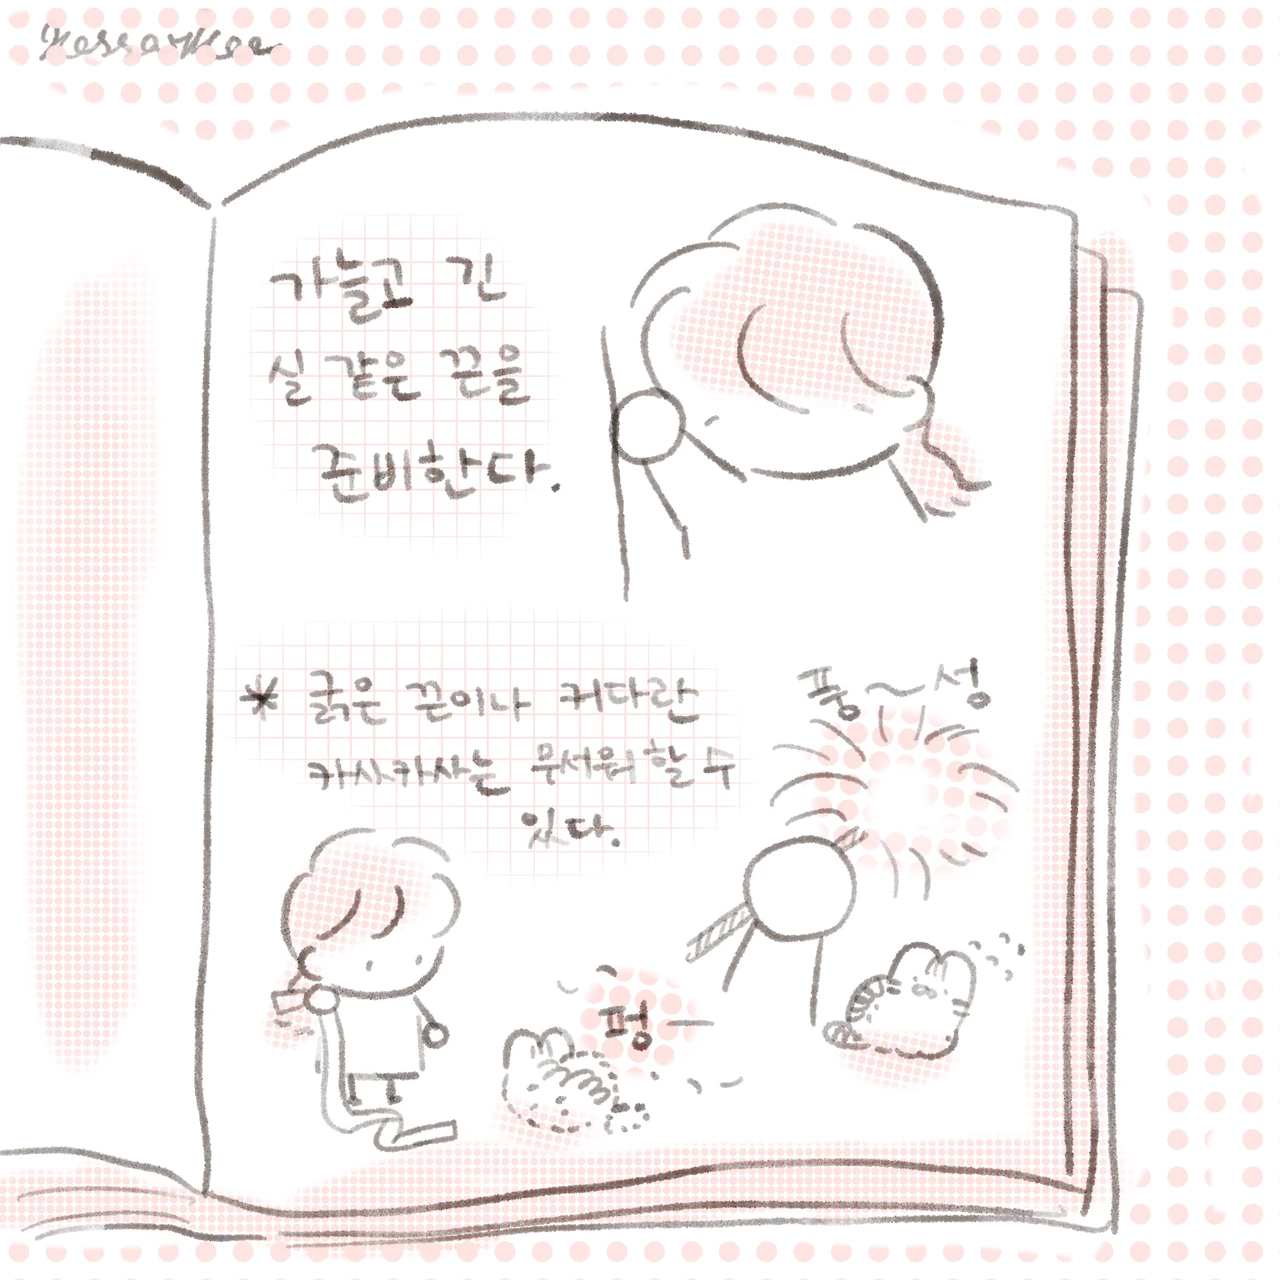 가늘고 긴
실 같은 끈을
준비한다.
* 굵은 끈이나 커다란
카사카사는 무서워 할 수
있다.
풍~성
펑-